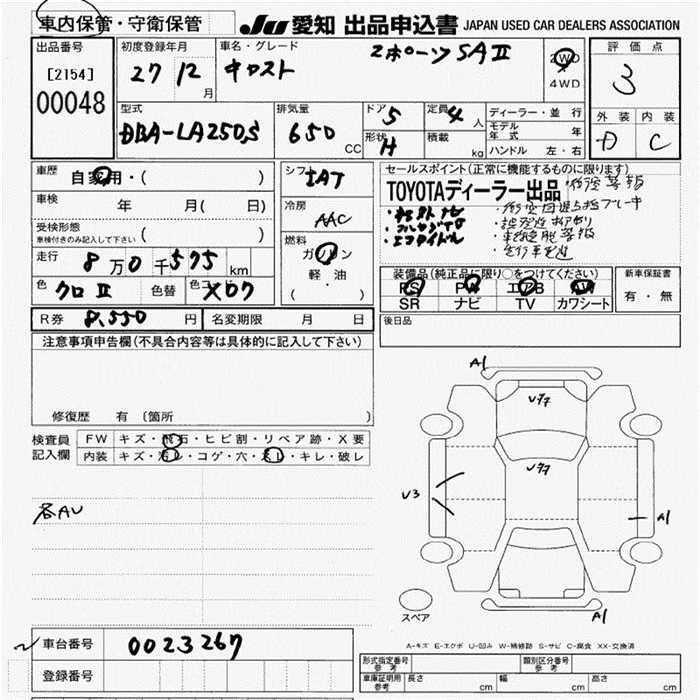 車内保管・守衛保管
JU 愛知 出品申込書 JAPAN USED CAR DEALERS ASSOCIATION
出品番号
[2154]
00048
初度登録年月
27 12月
車名・グレード
キャスト スポーツSAⅡ
2WD
4WD
評価点
3
外装 内装
D C
型式
DBA-LA250S
排気量
650 CC
ドア 5
形状 H
定員 4人
積載 kg
ディーラー・並行
モデル年式 年
ハンドル 左・右
車歴
自家用・( )
車検 年 月( 日)
受検形態
車検付きのみ記入して下さい ( )
走行 8万0千575km
色 クロⅡ
色替
色コード X07
シフト IAT
冷房 AAC
燃料
ガソリン
軽・油
( )
セールスポイント(正常に機能するものに限ります)
TOYOTAディーラー出品
装備品(純正品に限り○をつけてください)
PS PW エアB AW
SR ナビ TV カワシート
新車保証書
有・無
R券 8,550円
名変期限 月 日
後日品
注意事項申告欄(不具合内容等は具体的に記入して下さい)
修復歴 有 〔箇所 〕
検査員記入欄
FW キズ・飛石・ヒビ割・リペア跡・X要
内装 キズ・汚レ・コゲ・穴・スレ・キレ・破レ
各AU
A1
U3
A1
A1
スペア
A-キズ E-エクボ U-凹み W-補修跡 S-サビ C-腐食 XX-交換済
車台番号 0023267
登録番号
形式指定番号 参考
類別区分番号 参考
車庫証明用 参考
長さ cm 幅 cm 高さ cm